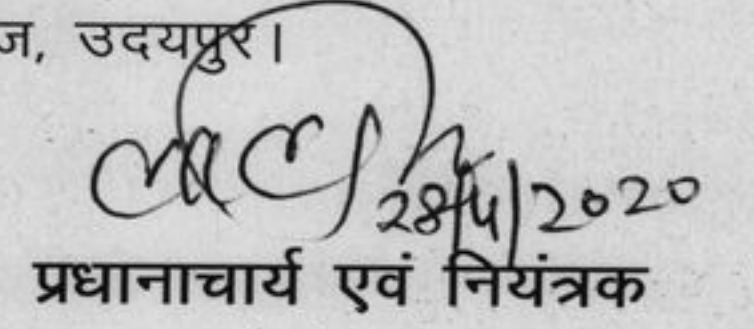 ज, उदयपुर।
28/4/2020
प्रधानाचार्य एवं नियंत्रक